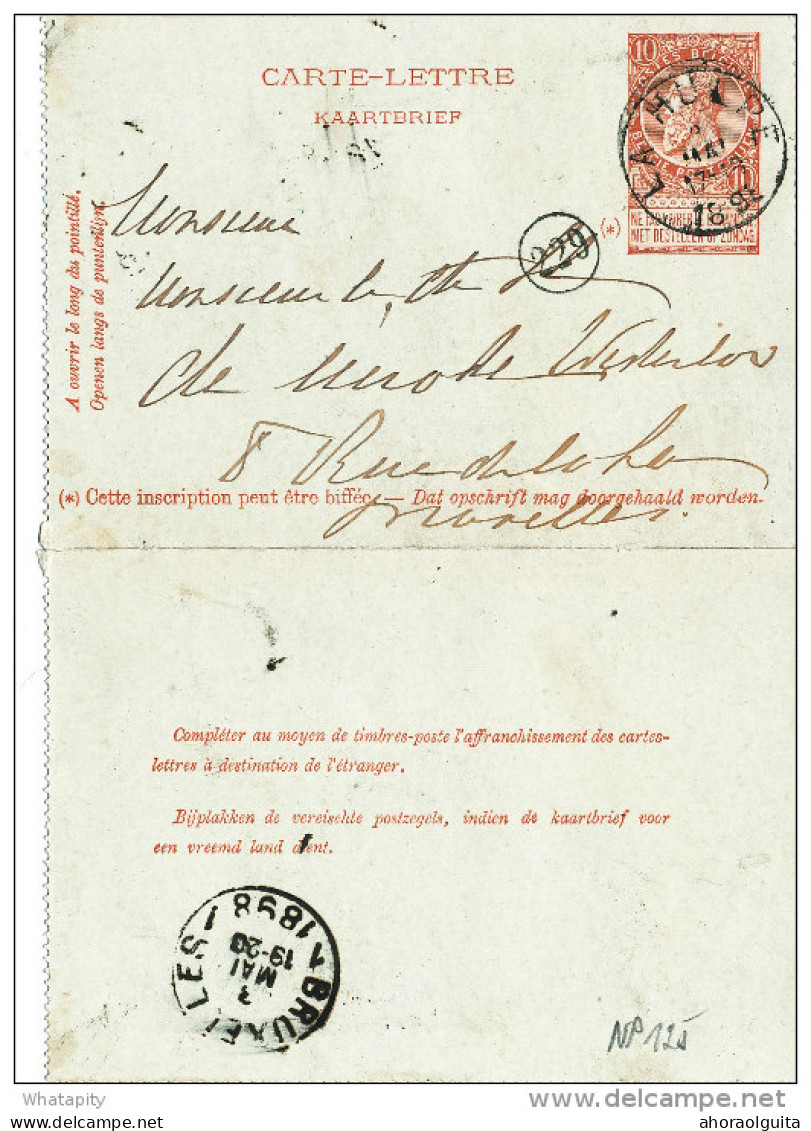 CARTE-LETTRE
KAARTBRIEF
10 10
LA HULPE
MAI
1898
NE PAS LIVRER LE DIMANCHE
NIET BESTELLEN OP ZONDAG
(*)
229
A ouvrir le long du pointillé.
Openen langs de puntenlijn.
Monsieur
Monsieur le Cte
de Merode Westerloo
8 Rue de la Loi
Bruxelles.
(*) Cette inscription peut être biffée. — Dat opschrift mag doorgehaald worden.
Compléter au moyen de timbres-poste l'affranchissement des cartes-
lettres à destination de l'étranger.
Bijplakken de vereischte postzegels, indien de kaartbrief voor
een vreemd land dient.
1 BRUXELLES 1
3
MAI
19-20
1898
NP 125
Whatapity
delcampe.net
ahoraolguita